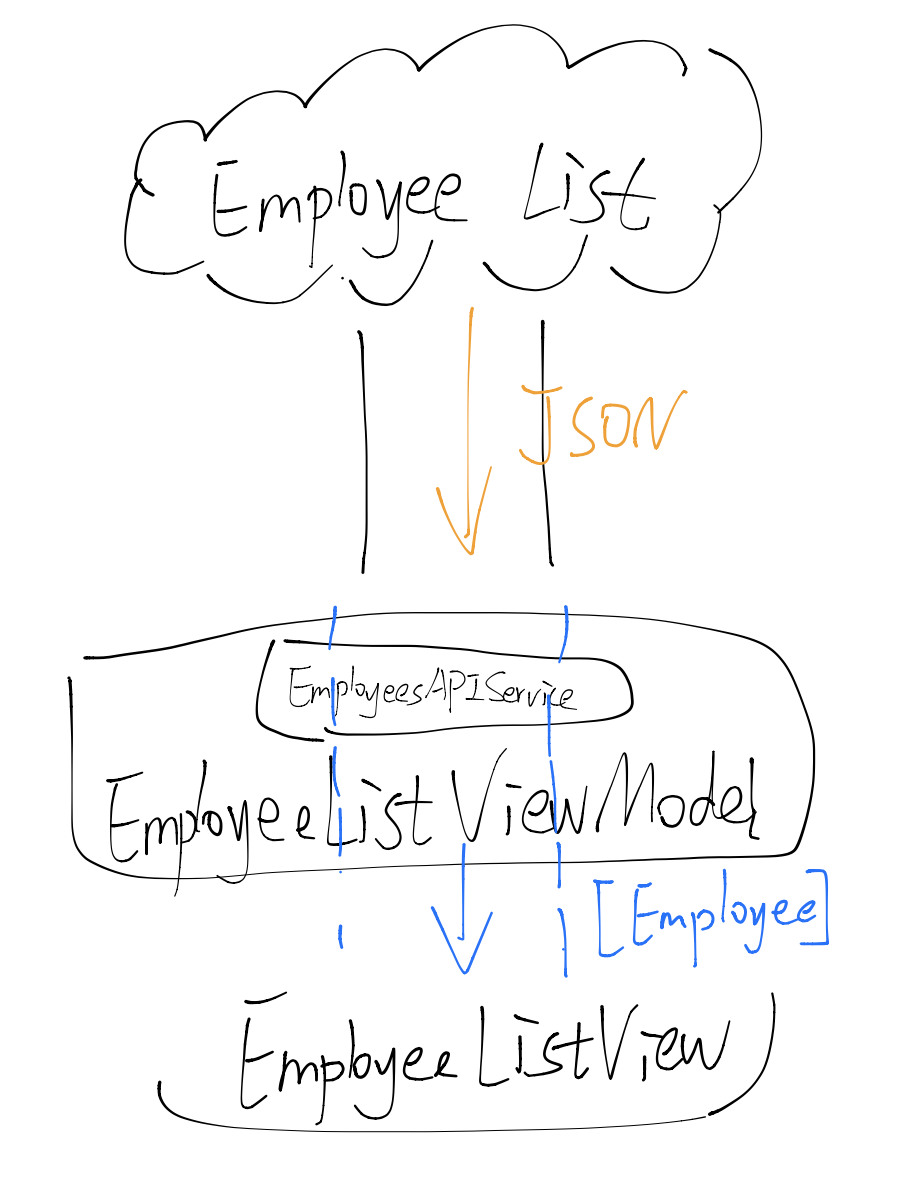 Employee List
JSON
EmployeesAPIService
EmployeeListViewModel
[Employee]
EmployeeListView